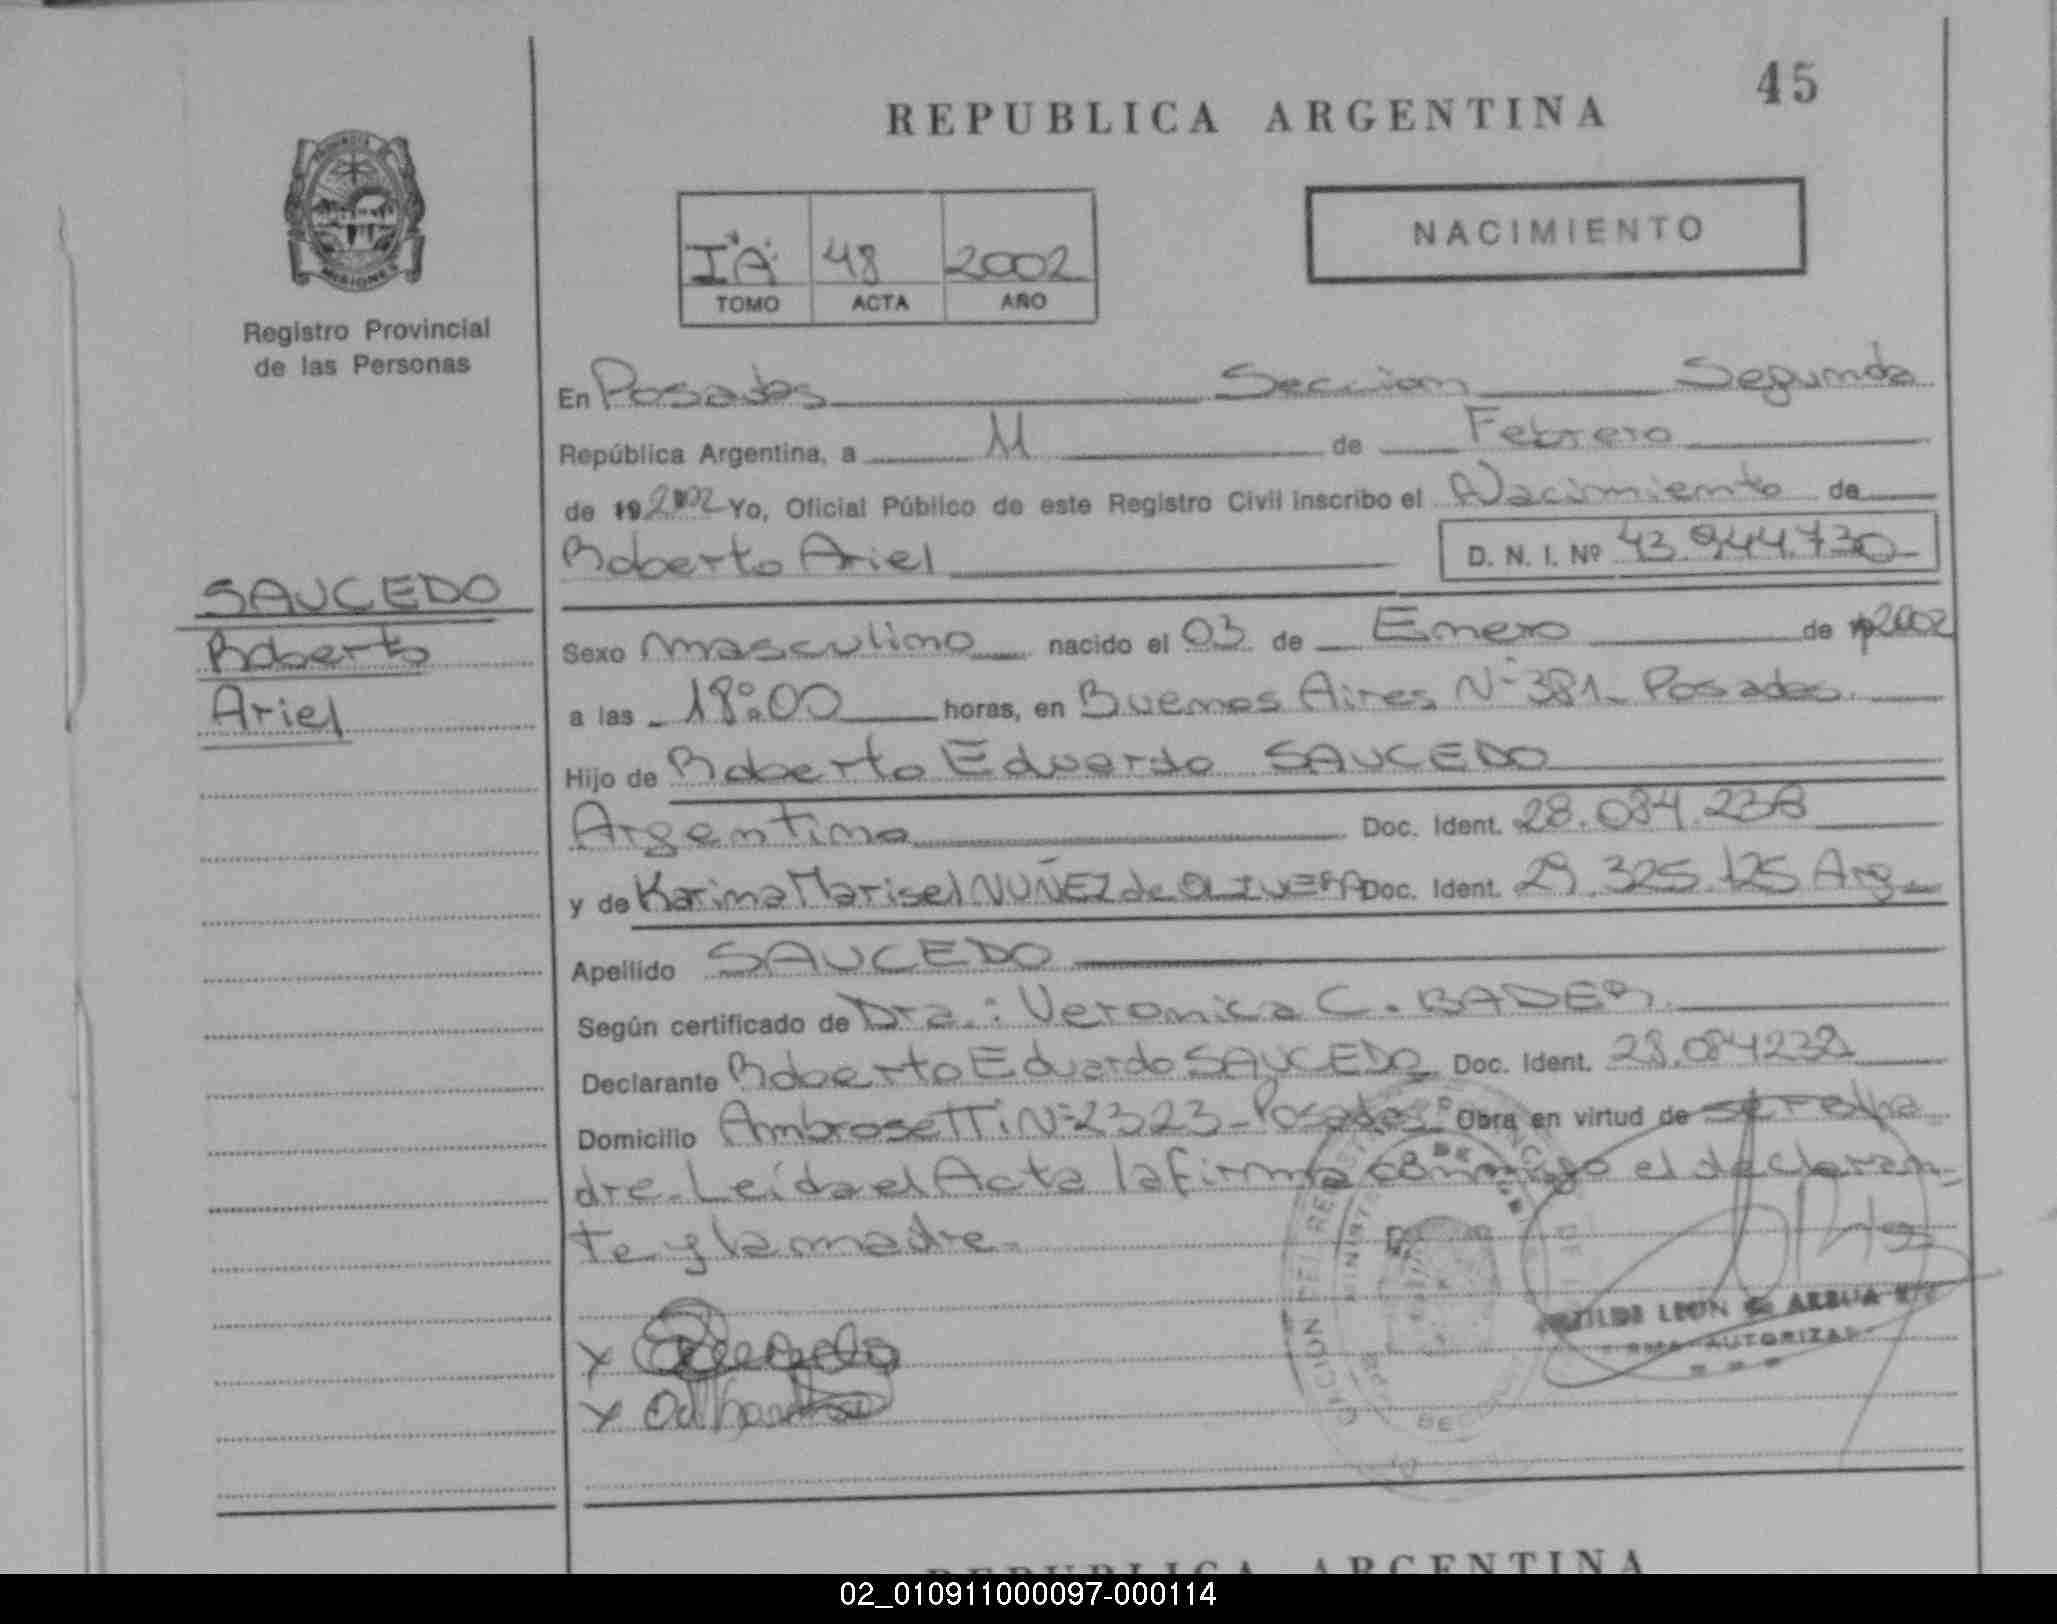 45
REPUBLICA ARGENTINA
NACIMIENTO
IA 48 2002
TOMO ACTA AÑO
MISIONES
Registro Provincial
de las Personas
En Posadas Seccion Segunda
República Argentina, a 11 de Febrero
de 19 2002 Yo, Oficial Público de este Registro Civil inscribo el Nacimiento de
Roberto Ariel D. N. I. Nº 43.944.730
SAUCEDO
Roberto
Ariel
Sexo masculino nacido el 03 de Enero de 2002
a las 18:00 horas, en Buenos Aires Nº 381- Posadas.
Hijo de Roberto Eduardo SAUCEDO
Argentino Doc. Ident. 28.084.238
y de Karina Marisel NUÑEZ de OLIVERA Doc. Ident. 29.325.125 Arg.
Apellido SAUCEDO
Según certificado de Dra.: Veronica C. BADER.
Declarante Roberto Eduardo SAUCEDO Doc. Ident. 28.084238
Domicilio Ambrosetti Nº 2323- Posadas Obra en virtud de ser el pa
dre. Leída el Acta la firma conmigo el declaran-
te y la madre.
X
X
LEON AUTORIZA
REPUBLICA ARGENTINA
02_010911000097-000114